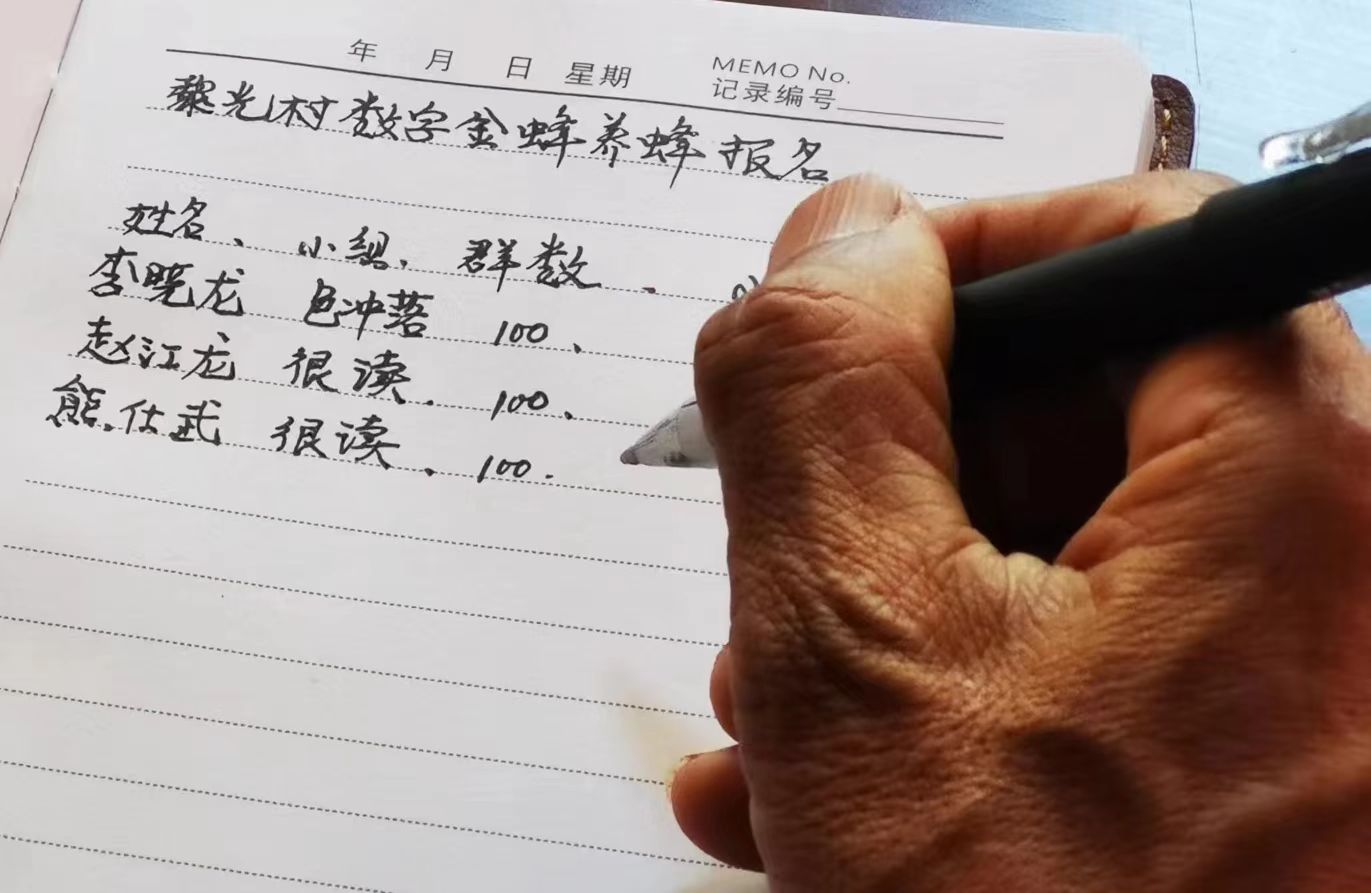 年 月 日 星期 MEMO No.
记录编号
黎光村数字金蜂养蜂报名
姓名、小组、群数、
李晓龙 包冲落 100、
赵江龙 很读、100、
熊仕武 很读、100.